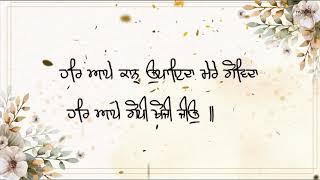 ਹਰਿ ਆਪੇ ਕਾਨੑ ਉਪਾਇਦਾ ਮੇਰੇ ਗੋਵਿਦਾ
ਹਰਿ ਆਪੇ ਗੋਪੀ ਖੋਜੀ ਜੀਉ ॥